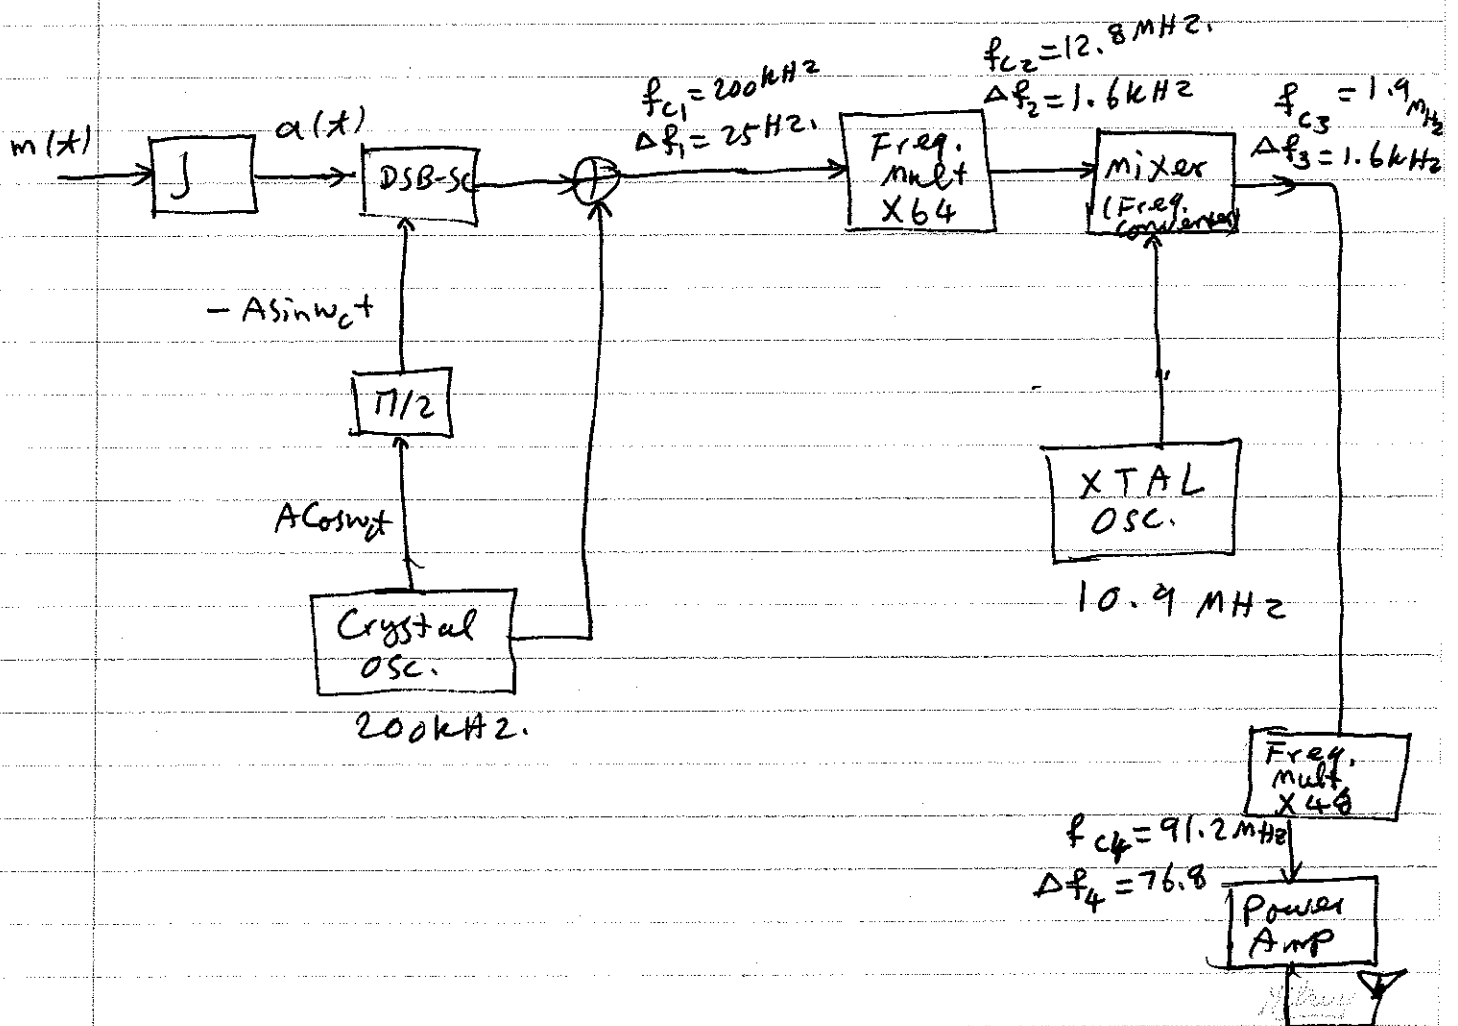 m(t)
∫
a(t)
DSB-SC
+
fc1=200kHz
Δf1=25Hz.
Freq.
mult
X64
fc2=12.8MHz.
Δf2=1.6kHz
Mixer
(Freq.
Converter)
fc3=1.9MHz
Δf3=1.6kHz
-Asinwct
π/2
ACoswct
Crystal
OSC.
200kHz.
XTAL
OSC.
10.9 MHz
Freq.
mult
X48
fc4=91.2MHz
Δf4=76.8
Power
Amp